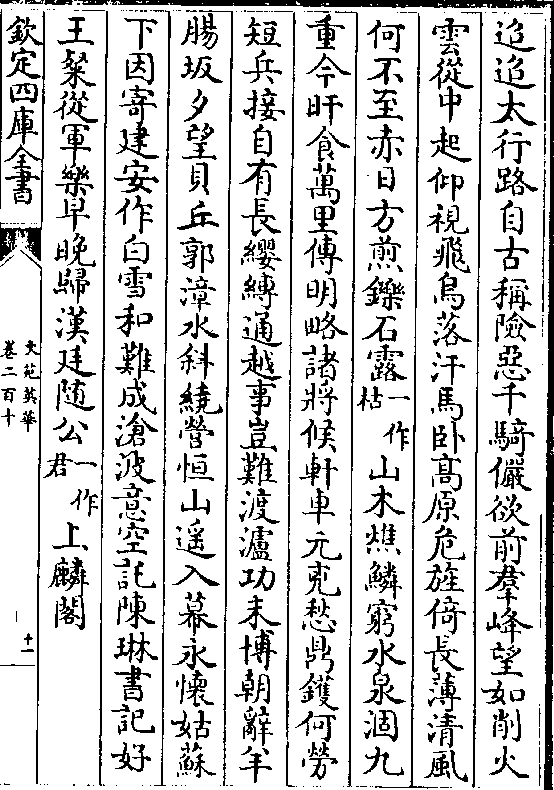 迢迢太行路自古稱險惡千騎儼欲前羣峰望如削火
雲從中起仰視飛鳥落汗馬卧高原危旌倚長薄清風
何不至赤日方煎鑠石露一作枯山木燋鱗窮水泉涸九
重今旰食萬里傳明略諸將候軒車元兇愁鼎鑊何勞
短兵接自有長纓縛通越事豈難渡瀘功未博朝辭羊
腸坂夕望貝丘郭漳水斜繞營恒山遥入幕永懷姑蘇
下因寄建安作白雪和難成滄波意空託陳琳書記好
王粲從軍樂早晚歸漢廷随公一作君上麟閣
欽定四庫全書
文苑英華
卷二百十
十一